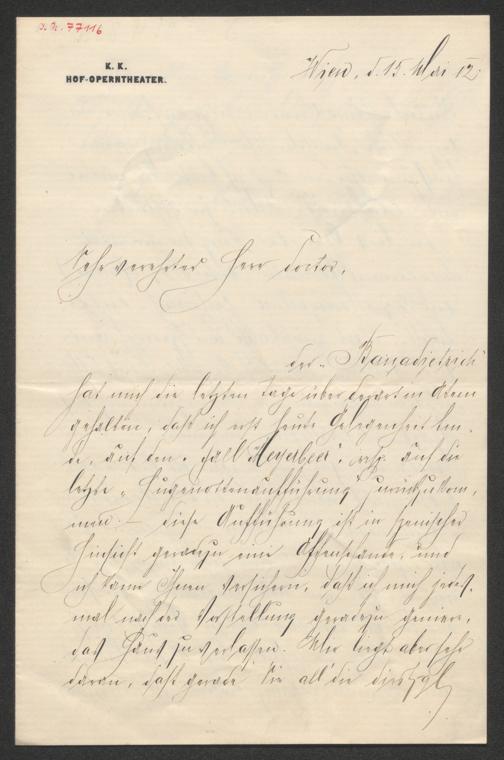 J.N. 77116
K. K.
HOF-OPERNTHEATER.
Wien, d. 15. Mai 12.
Sehr verehrter Herr Doctor,
der „Banadietrich“
hat mich die letzten Tage über derart in Atem
gehalten, daß ich erst heute Gelegenheit fin-
de, auf den „Fall Meyerbeer“, resp. auf die
letzte „Hugenottenaufführung“ zurückzukom-
men. – Diese Aufführung ist in szenischer
Hinsicht geradezu eine Affenschande, und
ich kann Ihnen versichern, daß ich mich jedes-
mal nach der Vorstellung geradezu geniere,
das Haus zu verlassen. Mir liegt aber sehr
daran, daß gerade Sie all' die